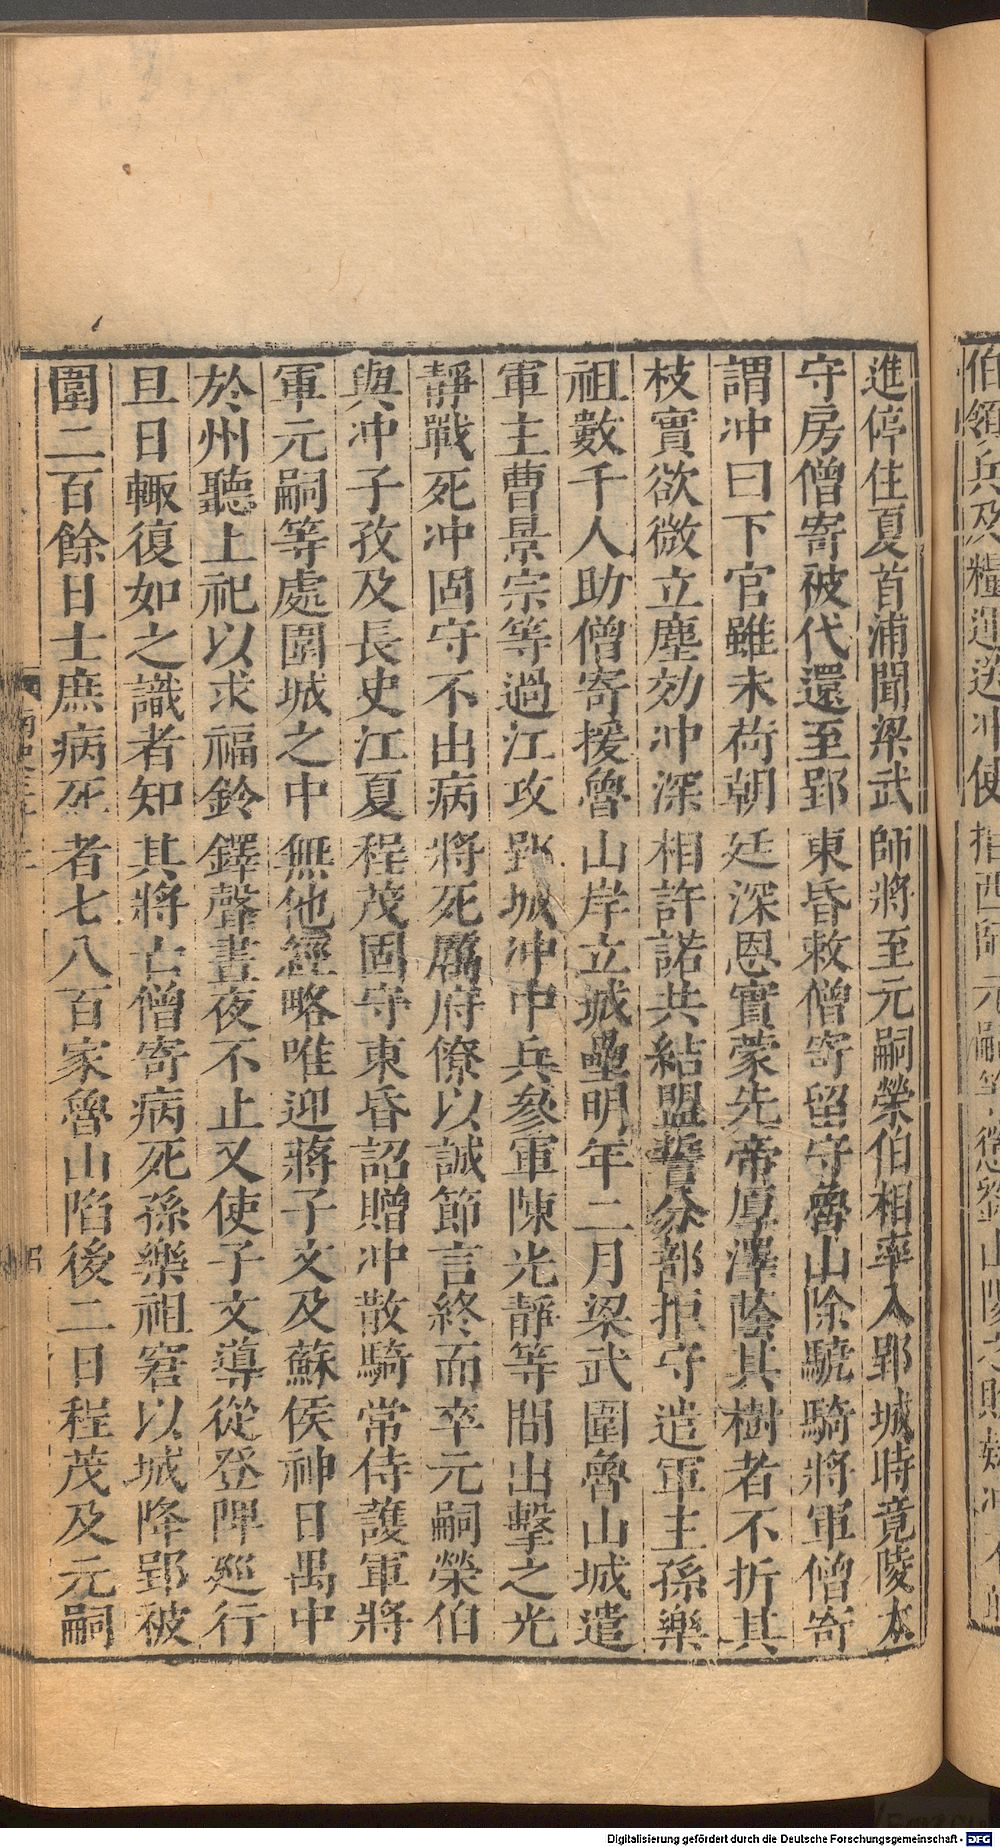 伯領兵及糧運送冲使
進停住夏首浦聞梁武師將至元嗣榮伯相率入郢城時竟陵太
守房僧寄被代還至郢東昏敕僧寄留守魯山除驍騎將軍僧寄
謂冲曰下官雖未荷朝廷深恩實蒙先帝厚澤蔭其樹者不折其
枝實欲微立塵効冲深相許諾共結盟誓分部拒守遣軍主孫樂
祖數千人助僧寄援魯山岸立城壘明年二月梁武圍魯山城遣
軍主曹景宗等過江攻郢城冲中兵參軍陳光靜等間出擊之光
靜戰死冲固守不出病將死厲府僚以誠節言終而卒元嗣榮伯
與冲子孜及長史江夏程茂固守東昏詔贈冲散騎常侍護軍將
軍元嗣等處圍城之中無他經略唯迎蔣子文及蘇侯神日禺中
於州聽上祀以求福鈴鐸聲晝夜不止又使子文導從登陴廵行
旦日輙復如之識者知其將亡僧寄病死孫樂祖窘以城降郢被
圍二百餘日士庶病死者七八百家魯山陷後二日程茂及元嗣
Digitalisierung gefördert durch die Deutsche Forschungsgemeinschaft - DFG